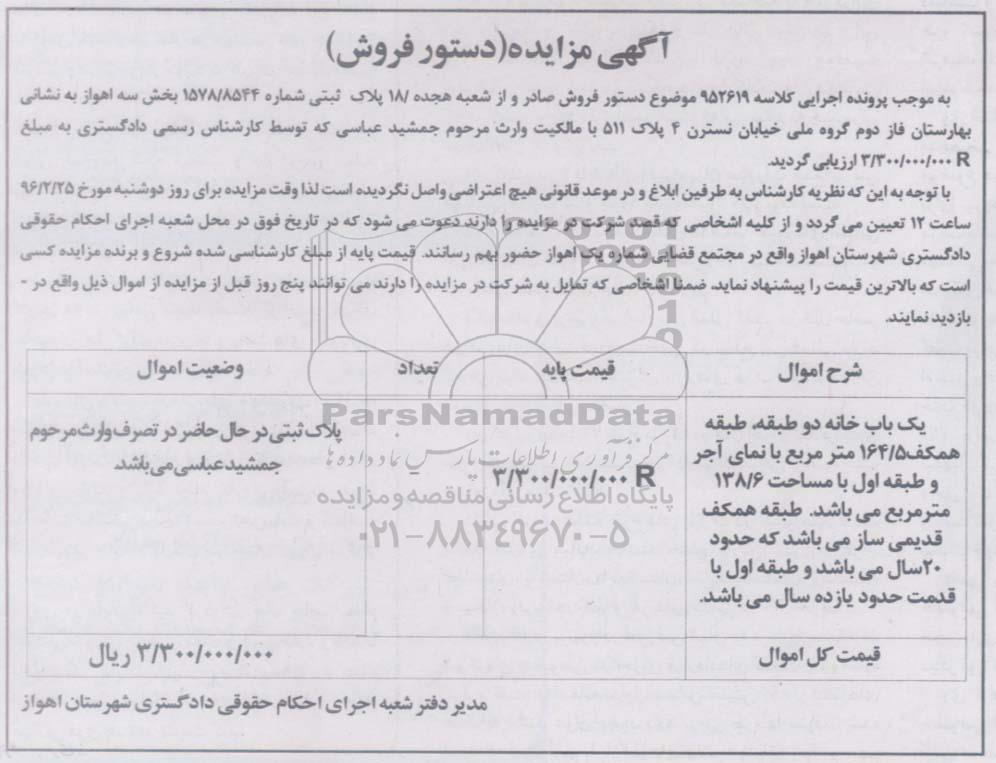 آگهی مزایده(دستور فروش)
به موجب پرونده اجرایی کلاسه ۹۵۲۶۱۹ موضوع دستور فروش صادر و از شعبه هجده /۱۸ پلاک ثبتی شماره ۱۵۷۸/۸۵۴۴ بخش سه اهواز به نشانی
بهارستان فاز دوم گروه ملی خیابان نسترن ۴ پلاک ۵۱۱ با مالکیت وارث مرحوم جمشید عباسی که توسط کارشناس رسمی دادگستری به مبلغ
R ۳/۳۰۰/۰۰۰/۰۰۰ ارزیابی گردید.
با توجه به این که نظریه کارشناس به طرفین ابلاغ و در موعد قانونی هیچ اعتراضی واصل نگردیده است لذا وقت مزایده برای روز دوشنبه مورخ ۹۶/۲/۲۵
ساعت ۱۲ تعیین می گردد و از کلیه اشخاصی که قصد شرکت در مزایده را دارند دعوت می شود که در تاریخ فوق در محل شعبه اجرای احکام حقوقی
دادگستری شهرستان اهواز واقع در مجتمع قضایی شماره یک اهواز حضور بهم رسانند. قیمت پایه از مبلغ کارشناسی شده شروع و برنده مزایده کسی
است که بالاترین قیمت را پیشنهاد نماید. ضمنا اشخاصی که تمایل به شرکت در مزایده را دارند می توانند پنج روز قبل از مزایده از اموال ذیل واقع در -
بازدید نمایند.
شرح اموال قیمت پایه تعداد وضعیت اموال
یک باب خانه دو طبقه، طبقه
همکف۱۶۴/۵ متر مربع با نمای آجر
و طبقه اول با مساحت ۱۳۸/۶
مترمربع می باشد. طبقه همکف
قدیمی ساز می باشد که حدود
۲۰سال می باشد و طبقه اول با
قدمت حدود یازده سال می باشد.
R ۳/۳۰۰/۰۰۰/۰۰۰
پلاک ثبتی در حال حاضر در تصرف وارث مرحوم
جمشید عباسی می باشد
ParsNamadData
مرکز فرآوری اطلاعات پارس نماد داده ها
پایگاه اطلاع رسانی مناقصه و مزایده
۰۲۱-۸۸۳۴۹۶۷۰-۵
قیمت کل اموال ۳/۳۰۰/۰۰۰/۰۰۰ ریال
مدیر دفتر شعبه اجرای احکام حقوقی دادگستری شهرستان اهواز